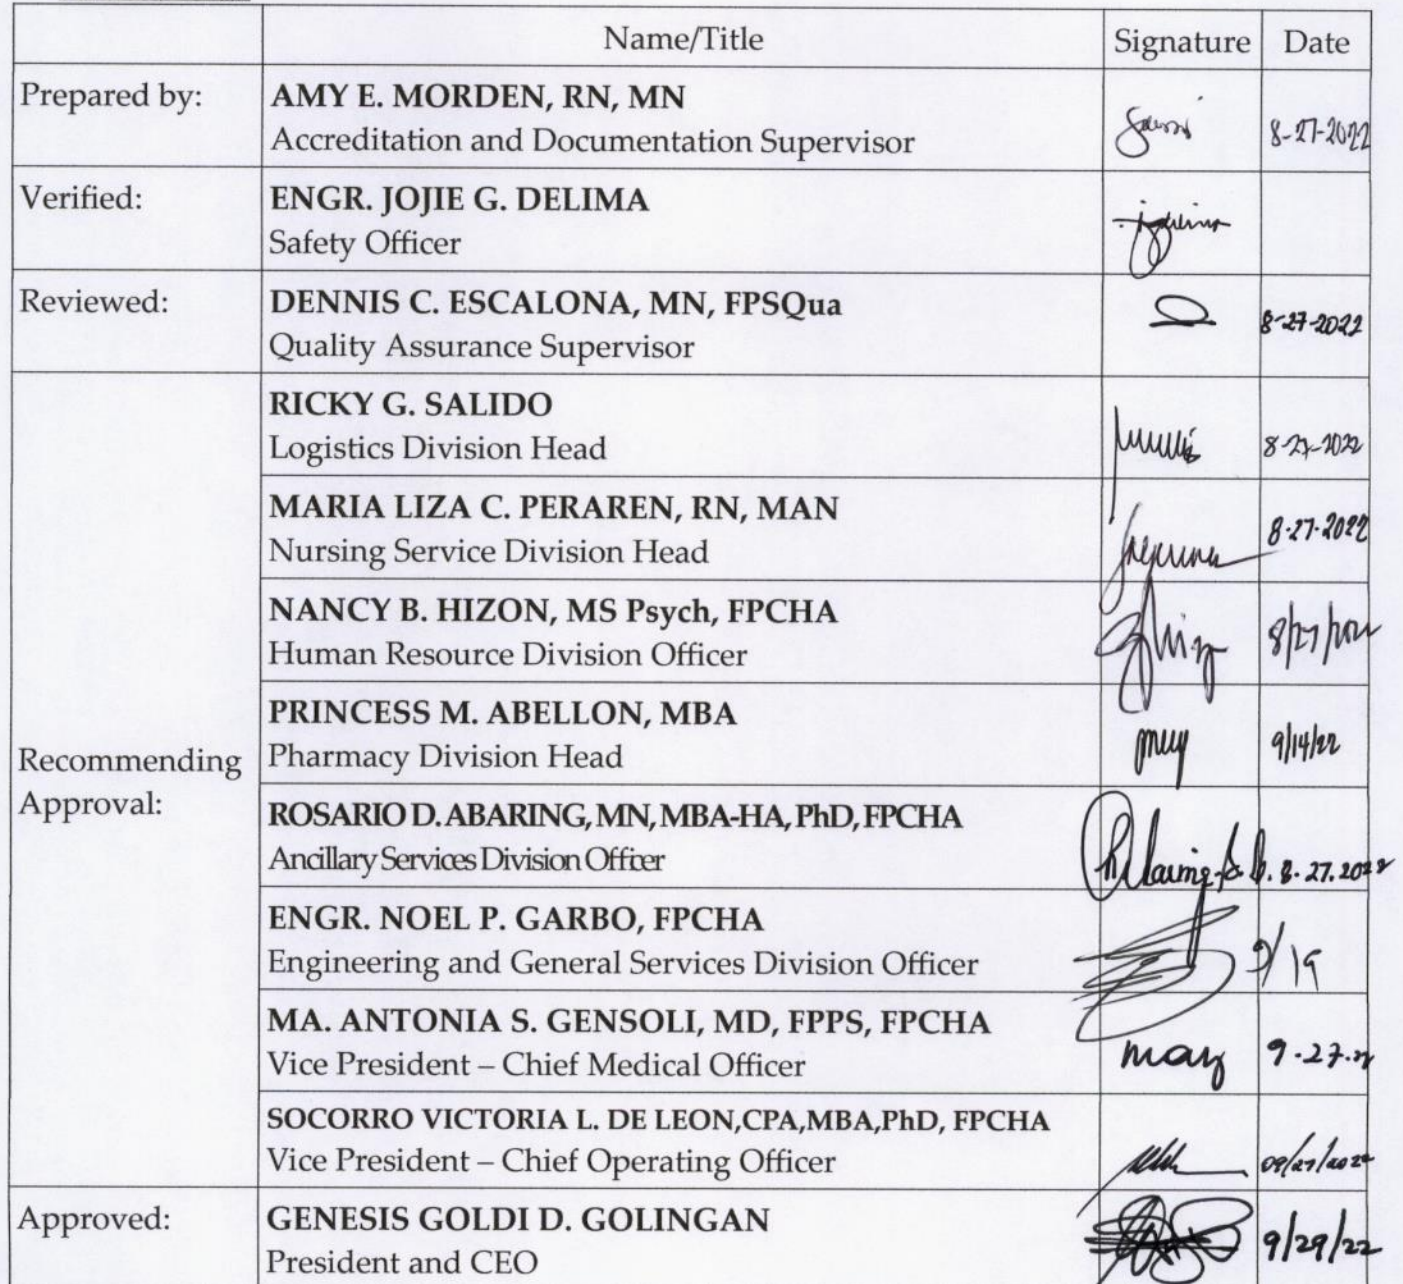 Name/Title Signature Date
Prepared by: AMY E. MORDEN, RN, MN
Accreditation and Documentation Supervisor 8-27-2022
Verified: ENGR. JOJIE G. DELIMA
Safety Officer
Reviewed: DENNIS C. ESCALONA, MN, FPSQua
Quality Assurance Supervisor 8-27-2022
RICKY G. SALIDO
Logistics Division Head 8-27-2022
MARIA LIZA C. PERAREN, RN, MAN
Nursing Service Division Head 8-27-2022
NANCY B. HIZON, MS Psych, FPCHA
Human Resource Division Officer 8/27/2022
PRINCESS M. ABELLON, MBA
Pharmacy Division Head 9/14/22
Recommending Approval:
ROSARIO D. ABARING, MN, MBA-HA, PhD, FPCHA
Ancillary Services Division Officer 8.27.2022
ENGR. NOEL P. GARBO, FPCHA
Engineering and General Services Division Officer 9/19
MA. ANTONIA S. GENSOLI, MD, FPPS, FPCHA
Vice President – Chief Medical Officer 9.27.22
SOCORRO VICTORIA L. DE LEON,CPA,MBA,PhD, FPCHA
Vice President – Chief Operating Officer 09/27/2022
Approved: GENESIS GOLDI D. GOLINGAN
President and CEO 9/29/22